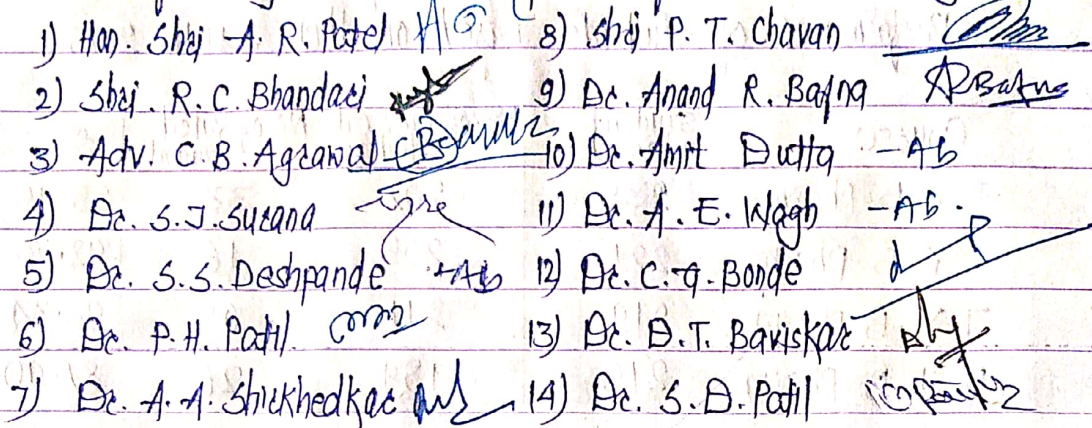 1) Hon. Shri A. R. Patel
2) Shri. R. C. Bhandari
3) Adv. C. B. Agrawal
4) Dr. S. J. Surana
5) Dr. S. S. Deshpande - Ab
6) Dr. P. H. Patil.
7) Dr. A. A. Shirkhedkar
8) Shri P. T. Chavan
9) Dr. Anand R. Bafna ARBafna
10) Dr. Amit Dutta - Ab
11) Dr. A. E. Wagh - Ab.
12) Dr. C. G. Bonde
13) Dr. D. T. Baviskar
14) Dr. S. D. Patil